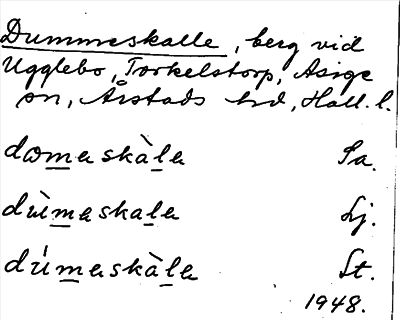 Dummeskalle, berg vid
Ugglebo, Torkelstorp, Asige
sn, Årstads hd, Hall. l.
domaskàla Sa.
dùmaskala Lj.
dúmaskàla St.
1948.